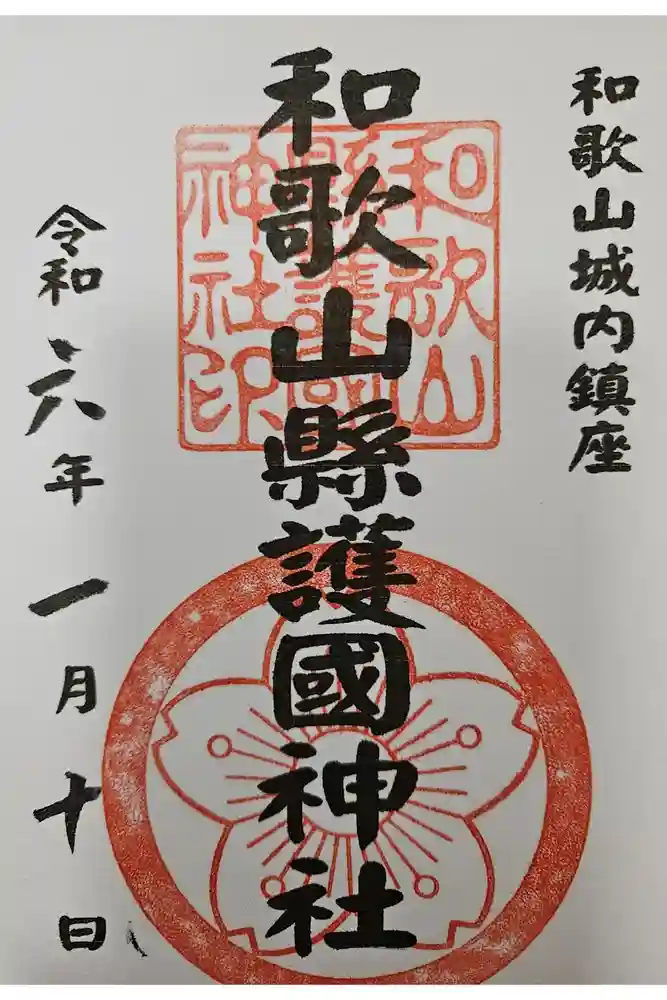 和歌山城内鎮座
和歌山縣護國神社
和歌山
縣護國
神社印
令和六年一月十日